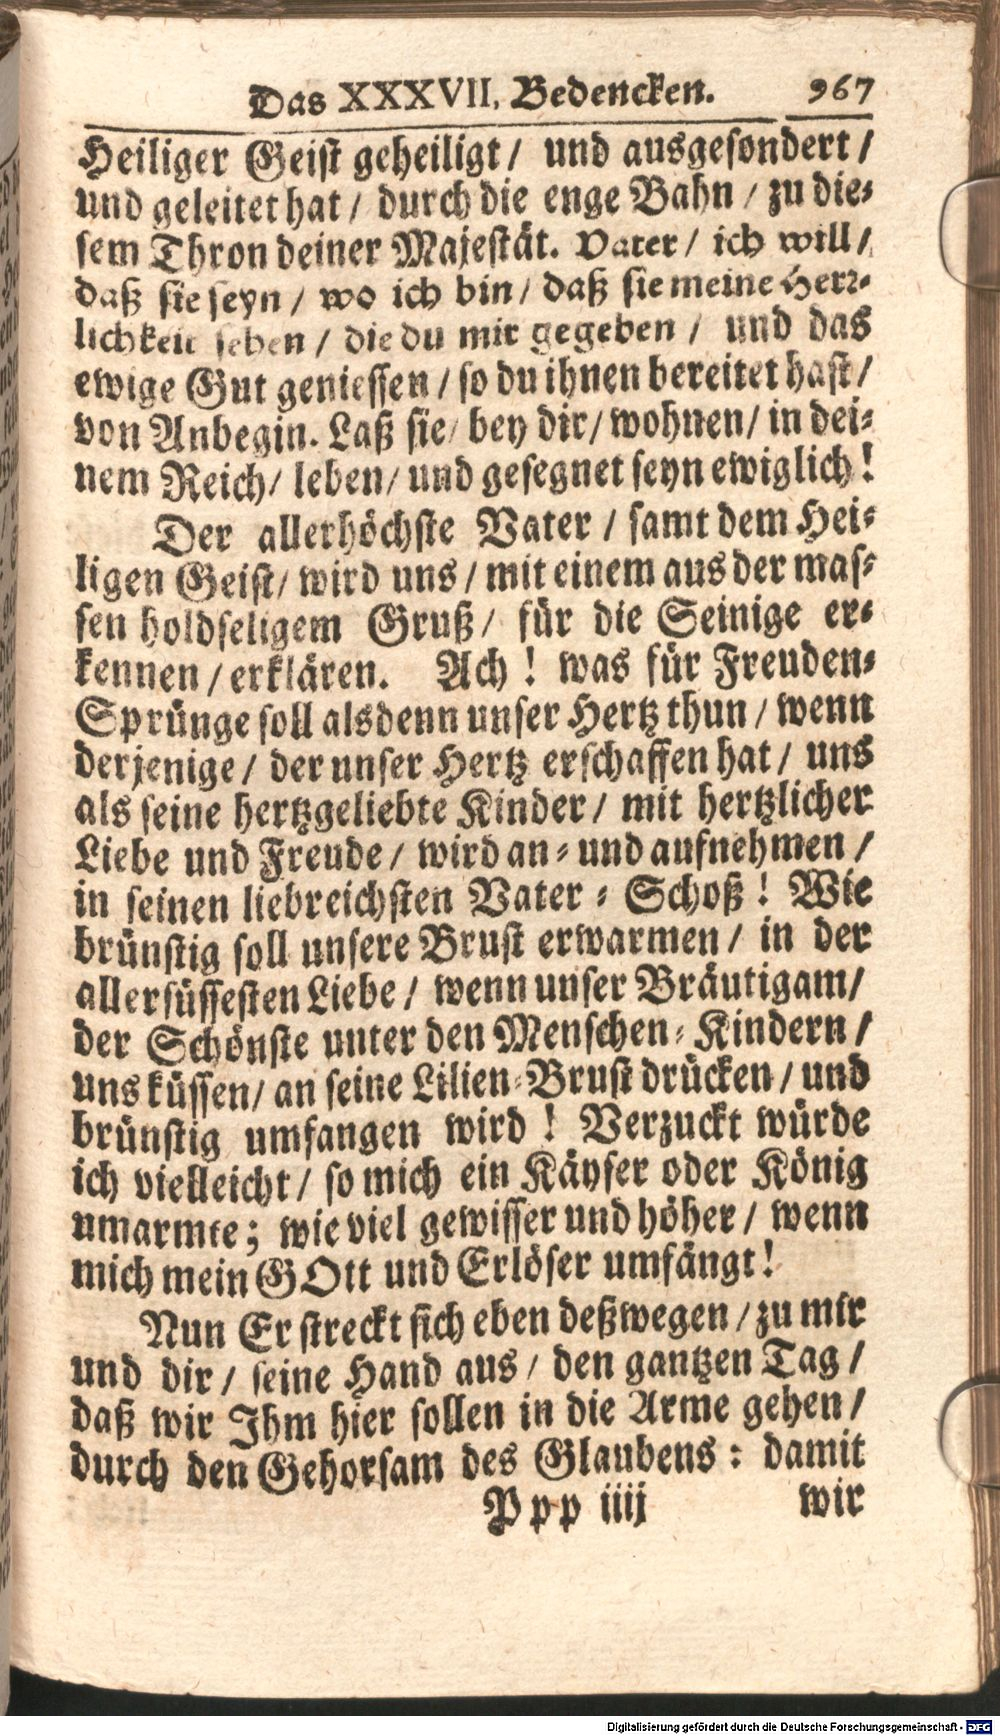 Das XXXVII. Bedencken. 967
Heiliger Geist geheiligt / und ausgesondert /
und geleitet hat / durch die enge Bahn / zu die-
sem Thron deiner Majestät. Vater / ich will /
daß sie seyn / wo ich bin / daß sie meine Herr-
lichkeit sehen / die du mir gegeben / und das
ewige Gut geniessen / so du ihnen bereitet hast /
von Anbegin. Laß sie / bey dir / wohnen / in dei-
nem Reich / leben / und gesegnet seyn ewiglich!
Der allerhöchste Vater / samt dem Hei-
ligen Geist / wird uns / mit einem aus der mas-
sen holdseligem Gruß / für die Seinige er-
kennen / erklären. Ach! was für Freuden-
Sprünge soll alsdenn unser Hertz thun / wenn
derjenige / der unser Hertz erschaffen hat / uns
als seine hertzgeliebte Kinder / mit hertzlicher
Liebe und Freude / wird an- und aufnehmen /
in seinen liebreichsten Vater-Schoß! Wie
brünstig soll unsere Brust erwarmen / in der
allersüssesten Liebe / wenn unser Bräutigam /
der Schönste unter den Menschen-Kindern /
uns küssen / an seine Lilien-Brust drücken / und
brünstig umfangen wird! Verzuckt würde
ich vielleicht / so mich ein Käyser oder König
umarmte; wie viel gewisser und höher / wenn
mich mein GOtt und Erlöser umfängt!
Nun Er streckt sich eben deßwegen / zu mir
und dir / seine Hand aus / den gantzen Tag /
daß wir Ihm hier sollen in die Arme gehen /
durch den Gehorsam des Glaubens: damit
Ppp iiij wir
Digitalisierung gefördert durch die Deutsche Forschungsgemeinschaft - DFG